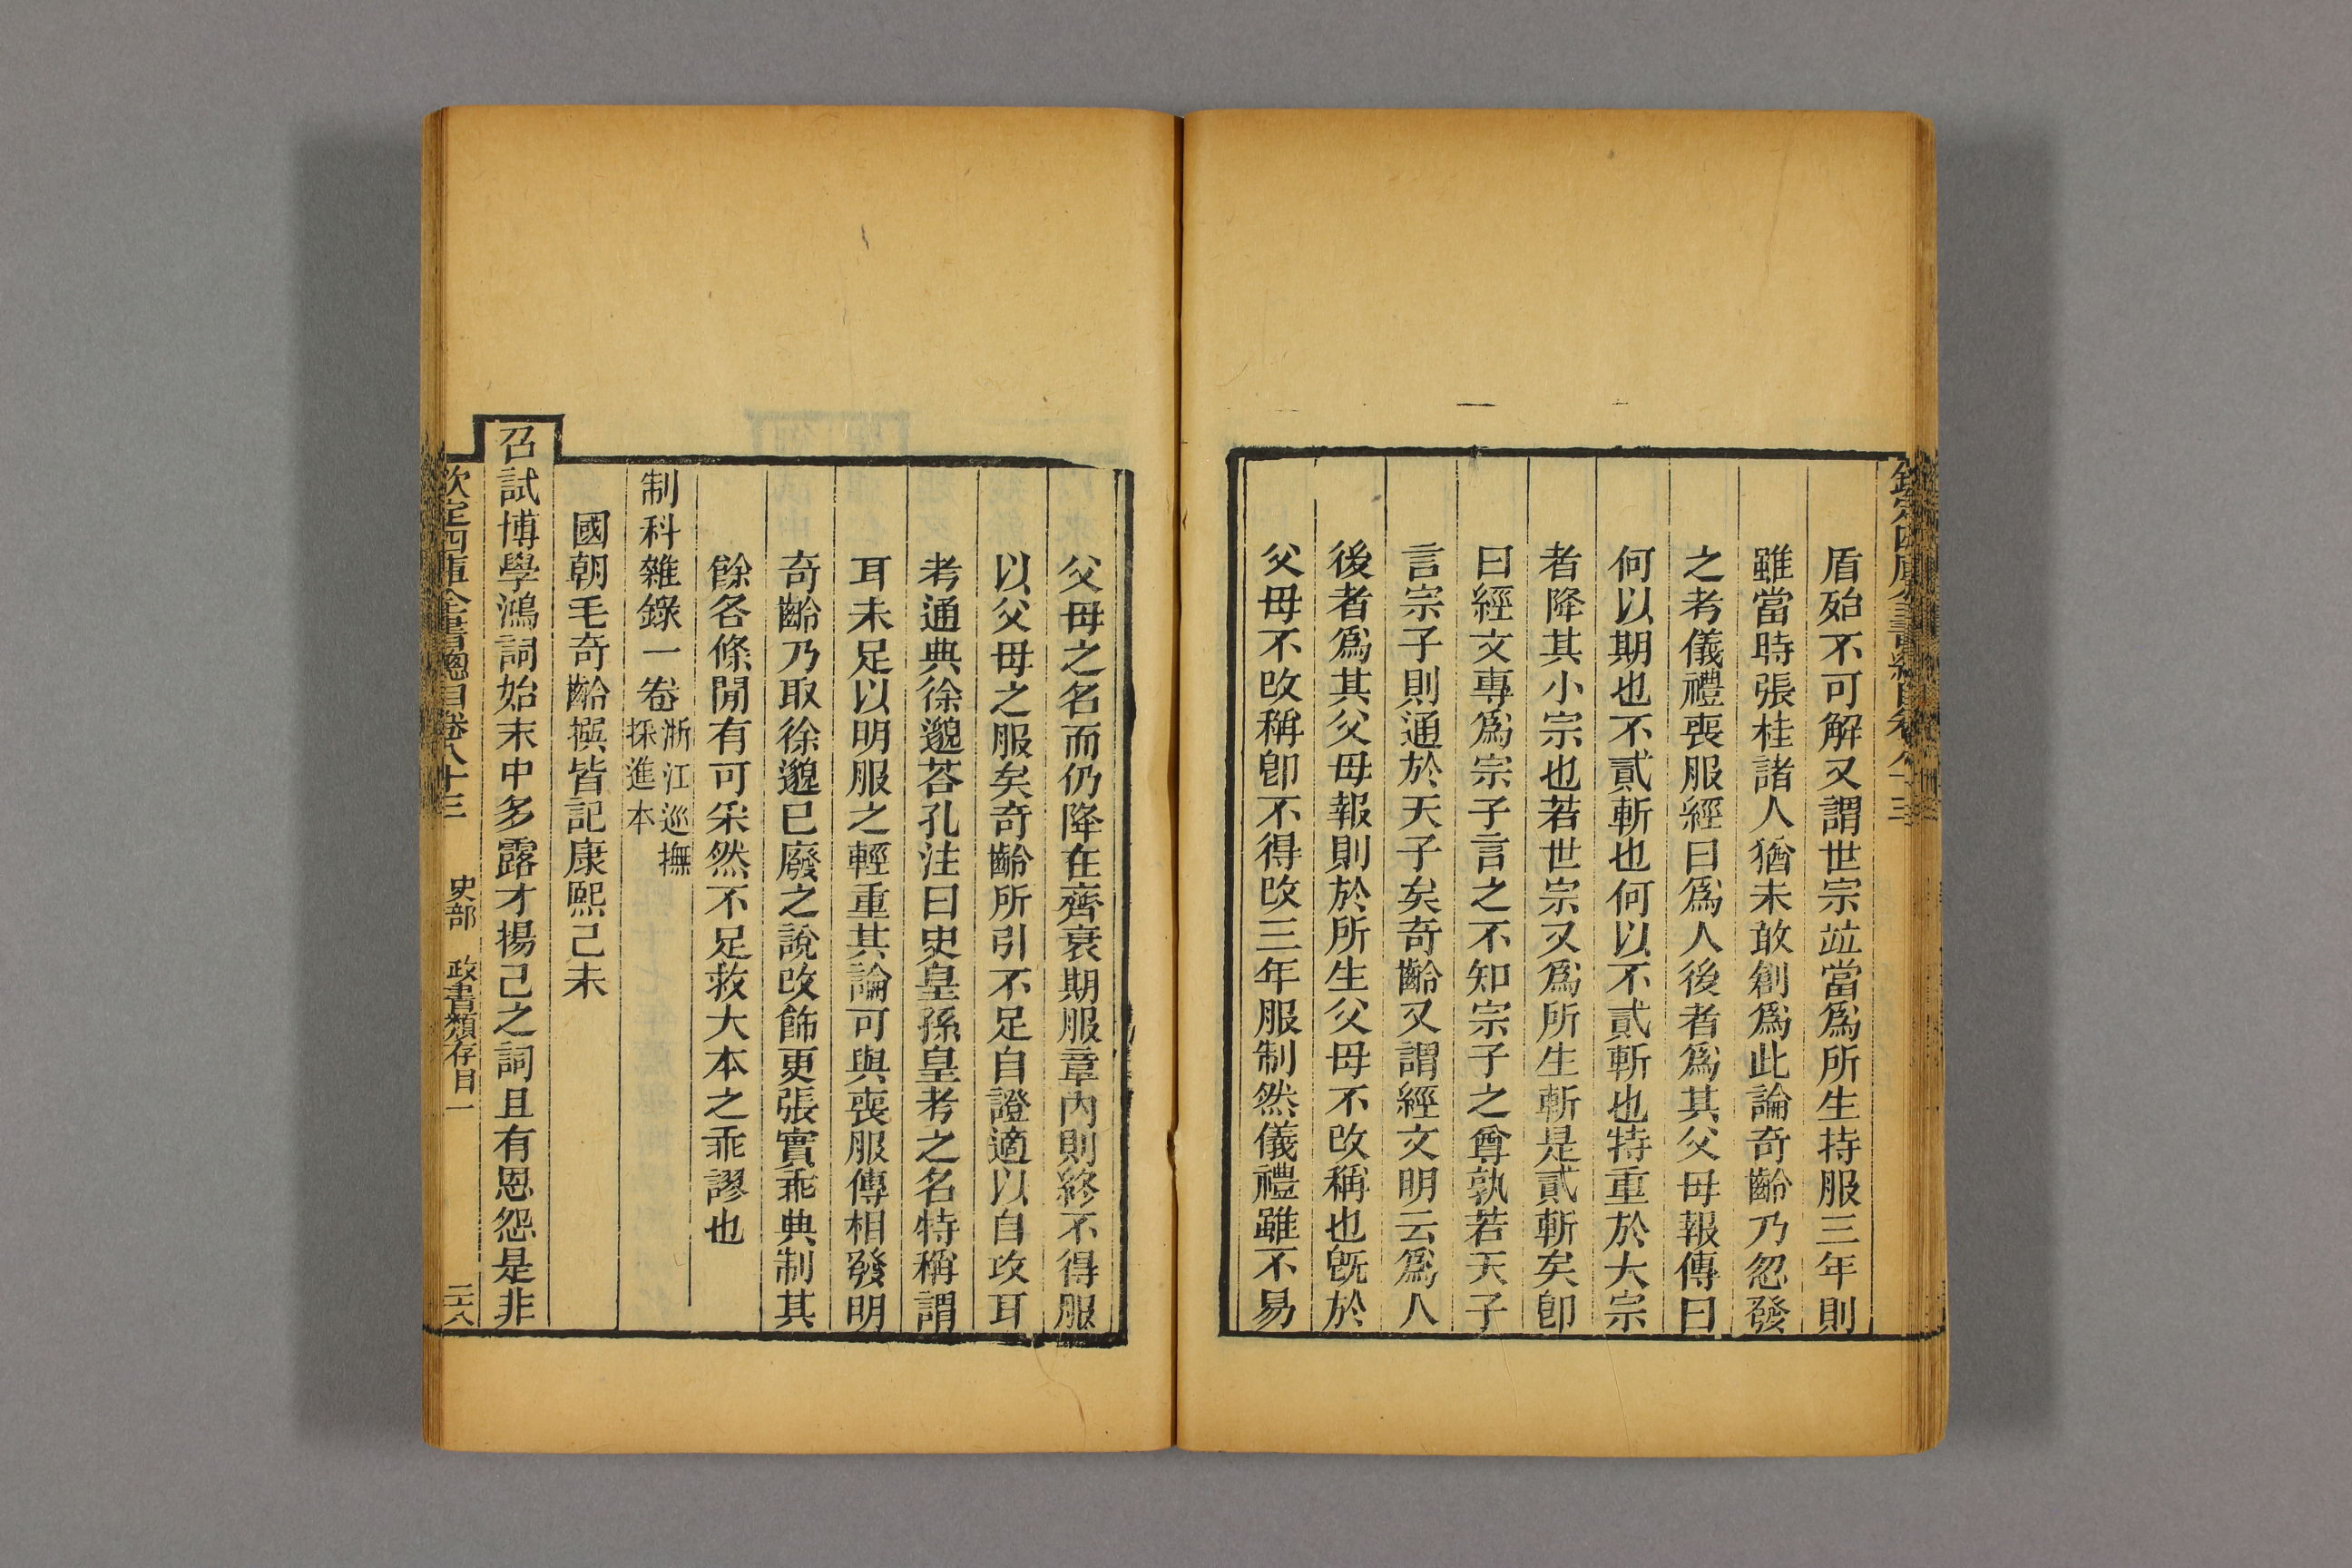 欽定四庫全書總目卷八十三
盾殆不可解又謂世宗竝當爲所生持服三年則
雖當時張桂諸人猶未敢創爲此論奇齡乃忽發
之考儀禮喪服經曰爲人後者爲其父母報傳曰
何以期也不貳斬也何以不貳斬也特重於大宗
者降其小宗也若世宗又爲所生斬是貳斬矣卽
曰經文專爲宗子言之不知宗子之尊孰若天子
言宗子則通於天子矣奇齡又謂經文明云爲人
後者爲其父母報則於所生父母不改稱也旣於
父母不改稱卽不得改三年服制然儀禮雖不易
父母之名而仍降在齊衰期服章內則終不得服
以父母之服矣奇齡所引不足自證適以自攻耳
考通典徐邈荅孔注曰史皇孫皇考之名特稱謂
耳未足以明服之輕重其論可與喪服傳相發明
奇齡乃取徐邈已廢之說改飾更張實乖典制其
餘各條閒有可采然不足救大本之乖謬也
制科雜錄一卷浙江巡撫
採進本
國朝毛奇齡撰皆記康熙己未
召試博學鴻詞始末中多露才揚己之詞且有恩怨是非
欽定四庫全書總目卷八十三 史部 政書類存目一 二六八